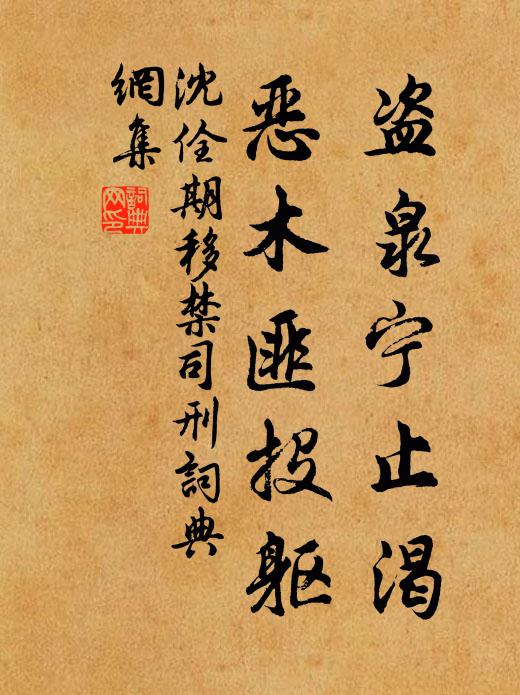 盗泉宁止渴
恶木匪投躯
沈佺期移禁司刑詞典
網集
詞典
网印